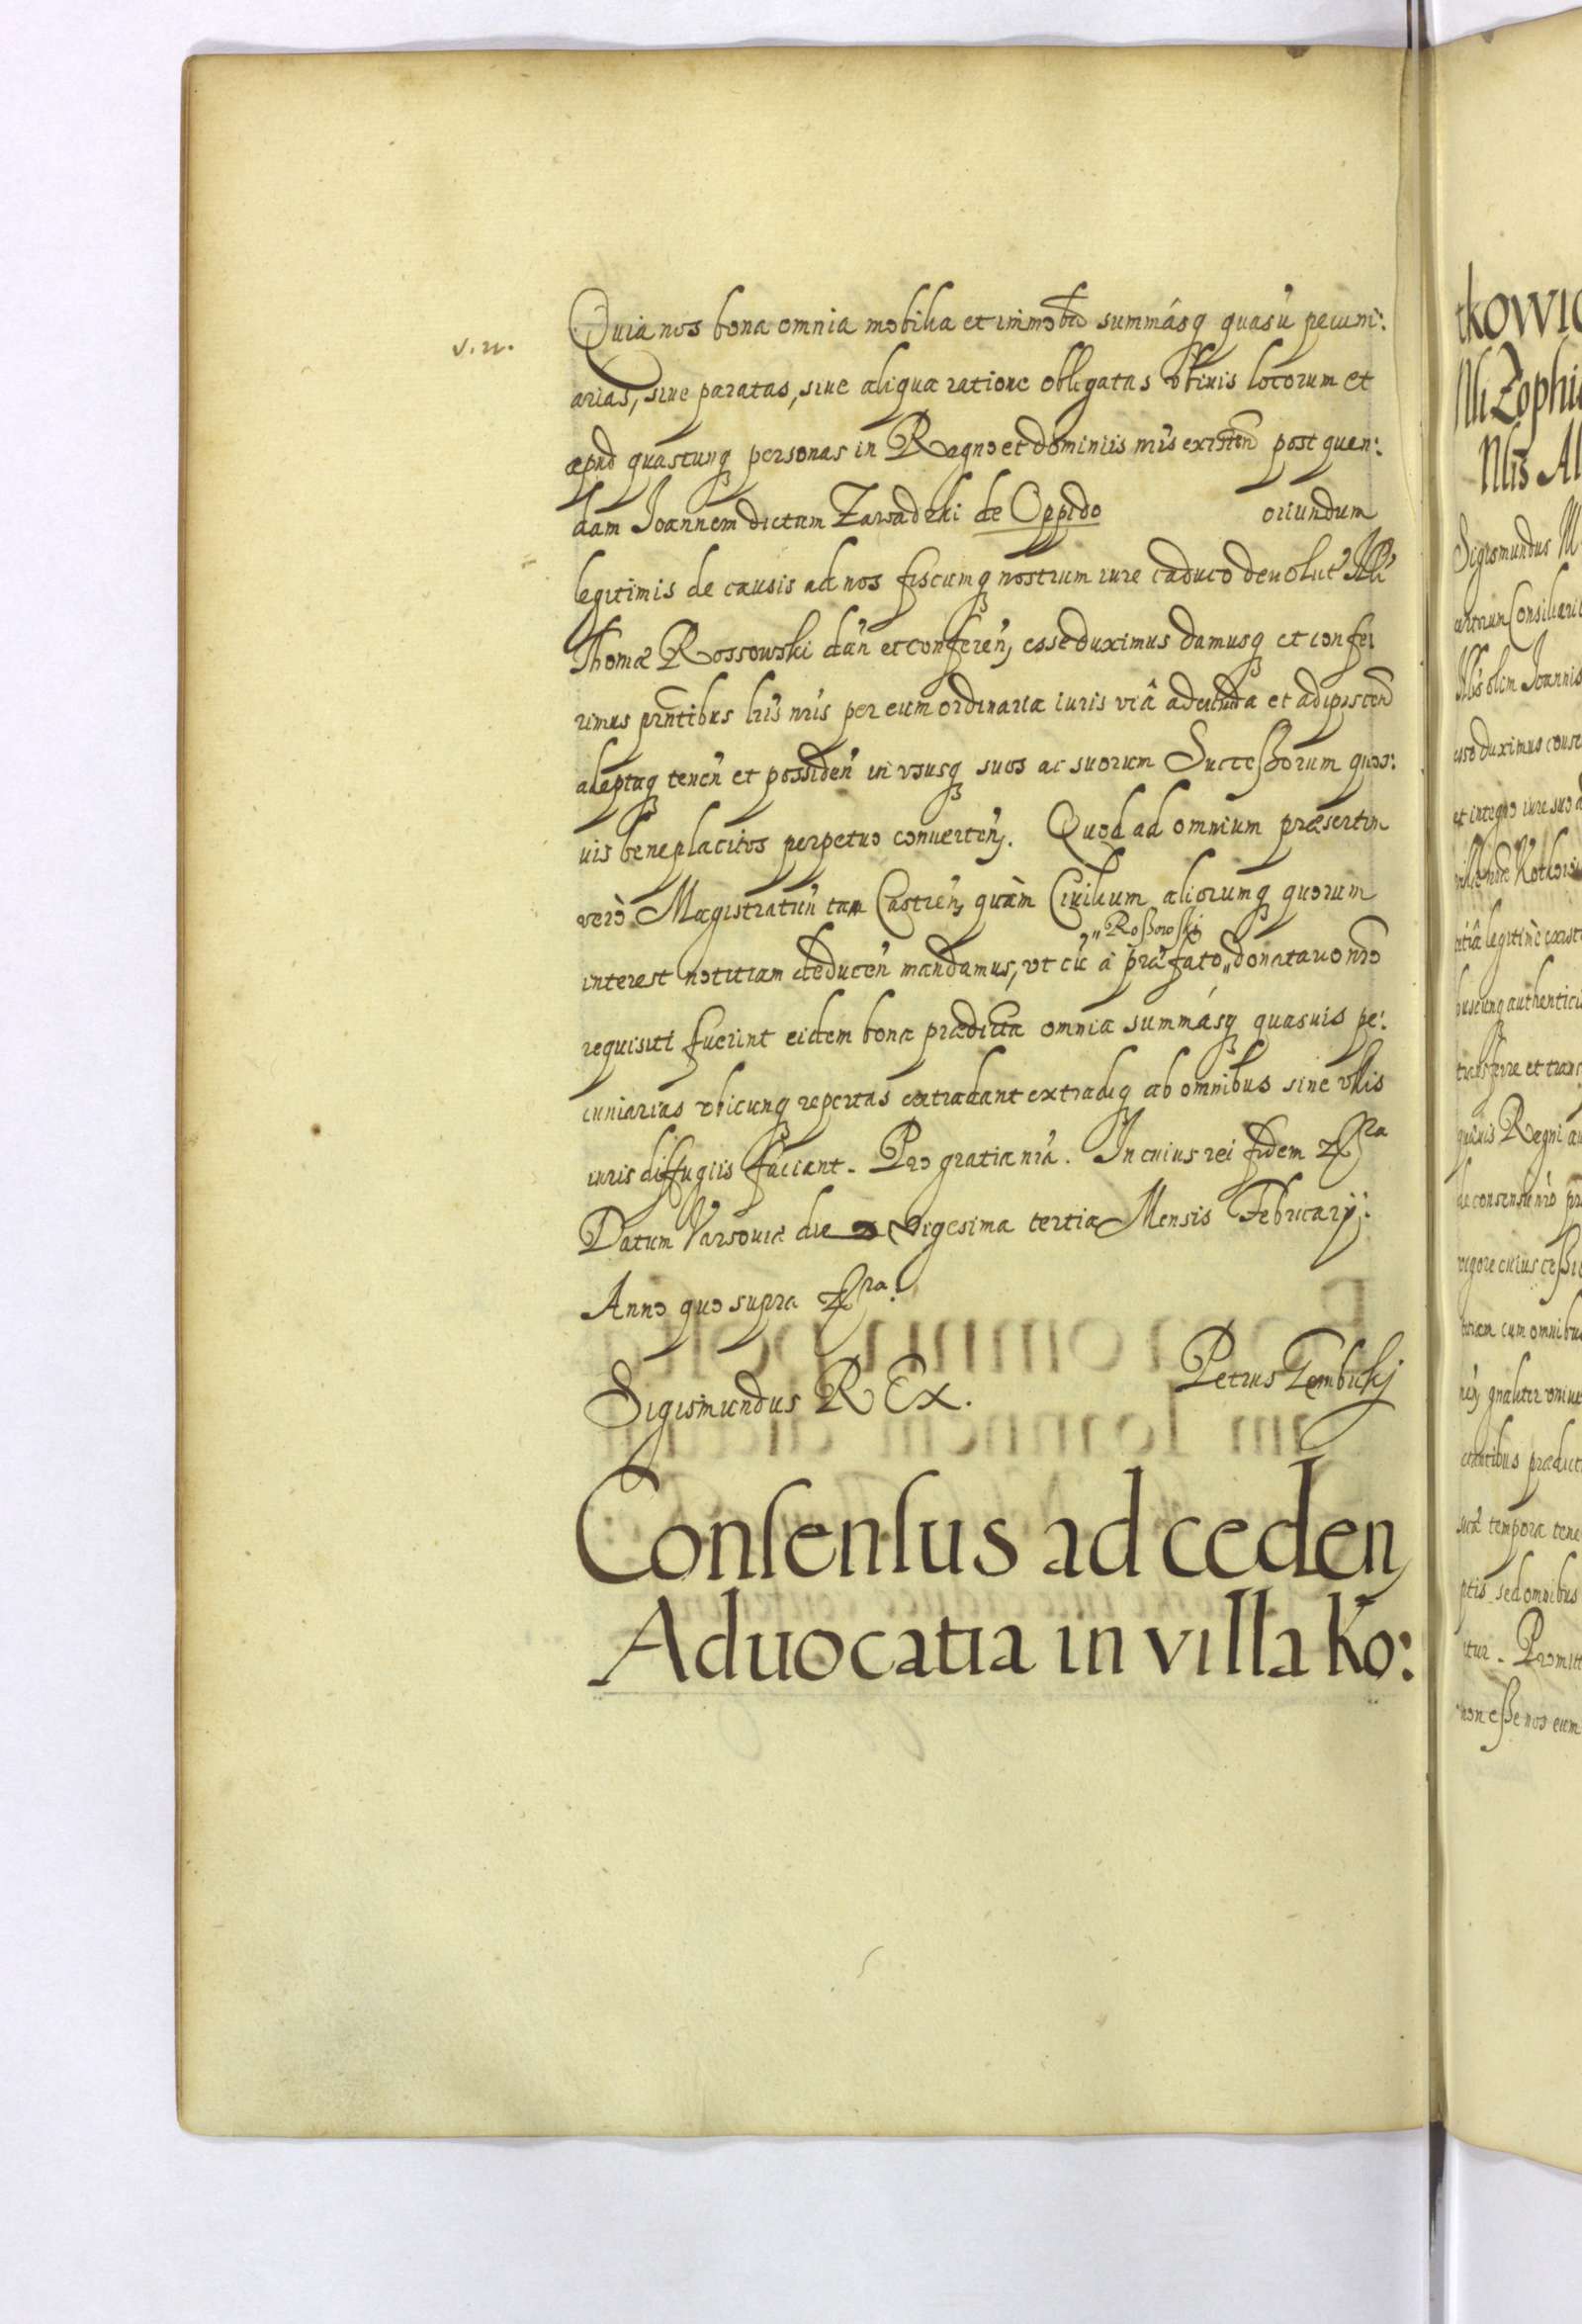 v. n.
Quia nos bona omnia mobilia et immobīa summásq quasú pecuni:
arias, siue paratas, siue aliqua ratione obligatas vbiuis locorum et
apud quascunq personas in Regno et dominiis nris existeñ post quen:
dam Joannem dictum Zawadzki de Oppido oriundum
legitimis de causis ad nos fiscumq nostrum iure caduco deuolut Nbli
Thomæ Rossowski dan̄ et conferen̄, esse duximus damusq et confe
rimus pñtibus lr̄is nr̄is per eum ordinaria iuris viâ adeunda et adipiscend
adeptaq tenen̄ et possiden̄ in vsusq suos ac suorum Successorum quos:
uis beneplacitos perpetuo conuerten̄. Quod ad omnium præsertim
verò Magistratuū tam Castren̄, quàm Ciuilium aliorumq quorum
„Rossowski
interest notitiam deducen̄ mandamus, vt cū à præfato „donatario nr̄o
requisiti fuerint eidem bona prædicta omnia summásq quasuis pe:
cuniarias vbicunq repertas extradant extradiq ab omnibus sine vllis
iuris diffugiis faciant. Pro gratia nr̄a. In cuius rei fidem &ra
Datum Varsouiæ die vigesima tertia Mensis Februarij.
Anno quo supra &ra.
Sigismundus REx. Petrus Gembickj
Consensus ad ceden,
Aduocatia in villa Ko:
tkowic
Nli Zophi
Nlis Al
Sigismundus M
Consiliarii
Nblis olim Joannis
esse duximus conse
et integro iure suo
buscunq authentici
transferre et trans
quiuis Regni au
de consensu nr̄o pr
vigore cuius cessi
cum omnibus
prædict
tempora tene
ptis sed omnibus
itur. Promitt
non esse nos eum